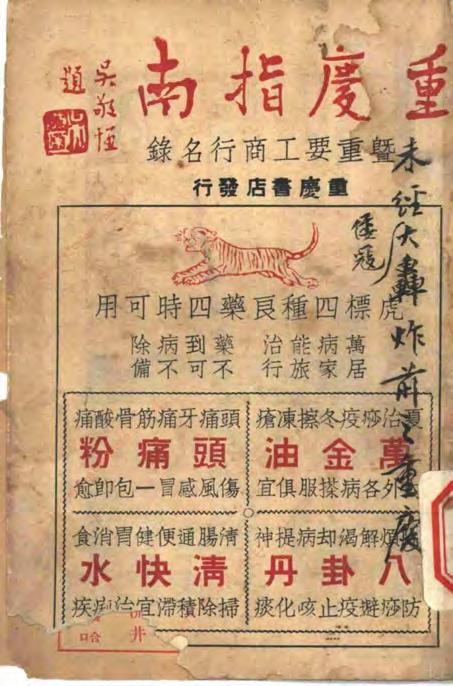 重慶指南
吳敬恆
題
暨重要工商行名錄
重慶書店發行
未經大轟炸前之重慶
倭寇
虎標四種良藥四時可用
萬病能治 藥到病除
居家旅行 不可不備
夏治痧疫冬擦凍瘡
萬金油
外各病搽服俱宜
頭痛牙痛筋骨酸痛
頭痛粉
傷風感冒一包即愈
煩解渴却病提神
八卦丹
防痧避疫止咳化痰
清腸通便健胃消食
清快水
掃除積滯宜治痢疾